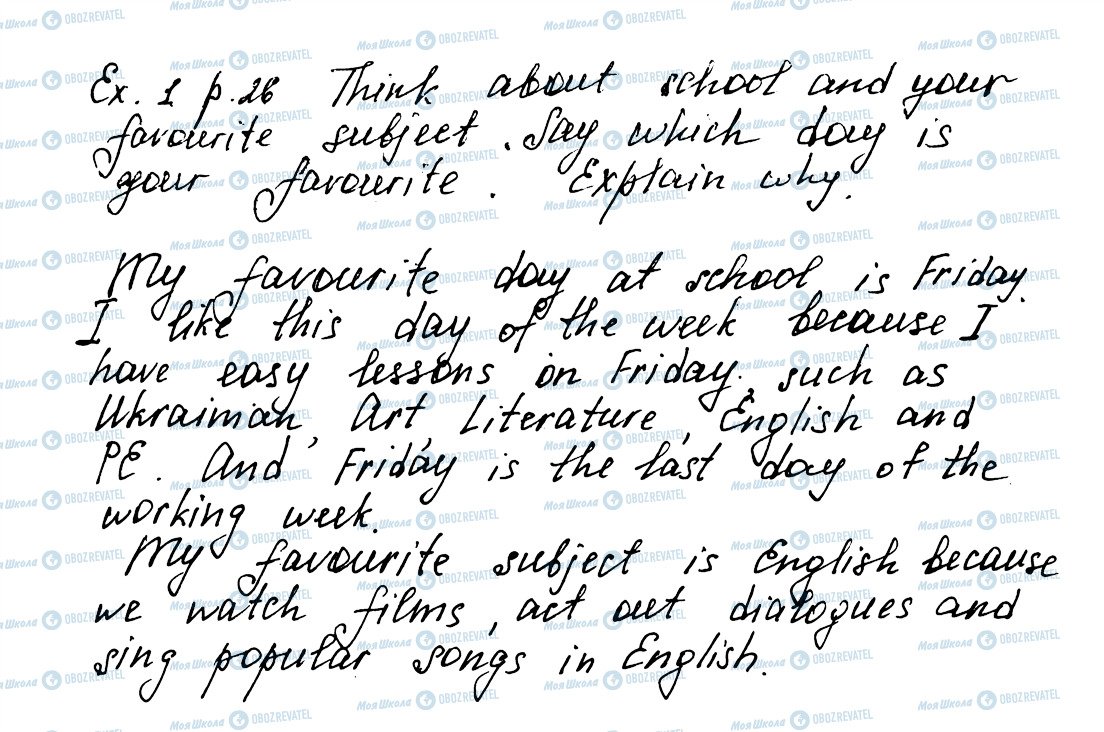 Ex. 1 p. 26 Think about school and your
favourite subject. Say which day is
your favourite. Explain why.
My favourite day at school is Friday.
I like this day of the week because I
have easy lessons on Friday, such as
Ukrainian, Art, Literature, English and
PE. And Friday is the last day of the
working week.
My favourite subject is English because
we watch films, act out dialogues and
sing popular songs in English.
Моя Школа OBOZREVATEL